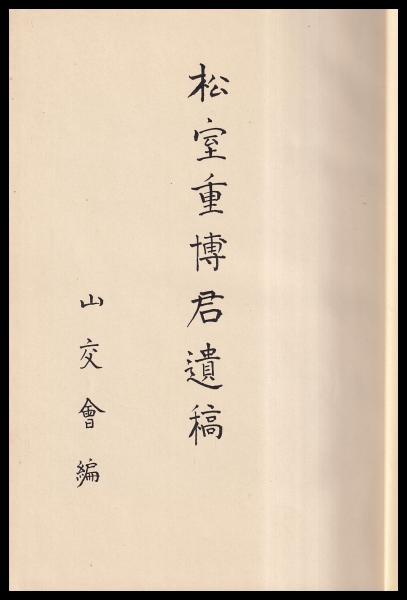 松室重博君遺稿
山交會編